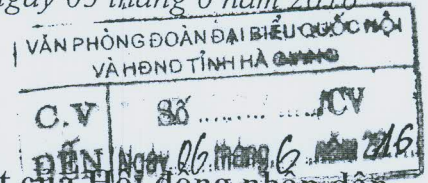 ngày 03 tháng 6 năm 2016
VĂN PHÒNG ĐOÀN ĐẠI BIỂU QUỐC HỘI
VÀ HĐND TỈNH HÀ GIANG
C.V Số ............../CV
ĐẾN Ngày 06 tháng 6 năm 2016
của Hội đồng nhân dân